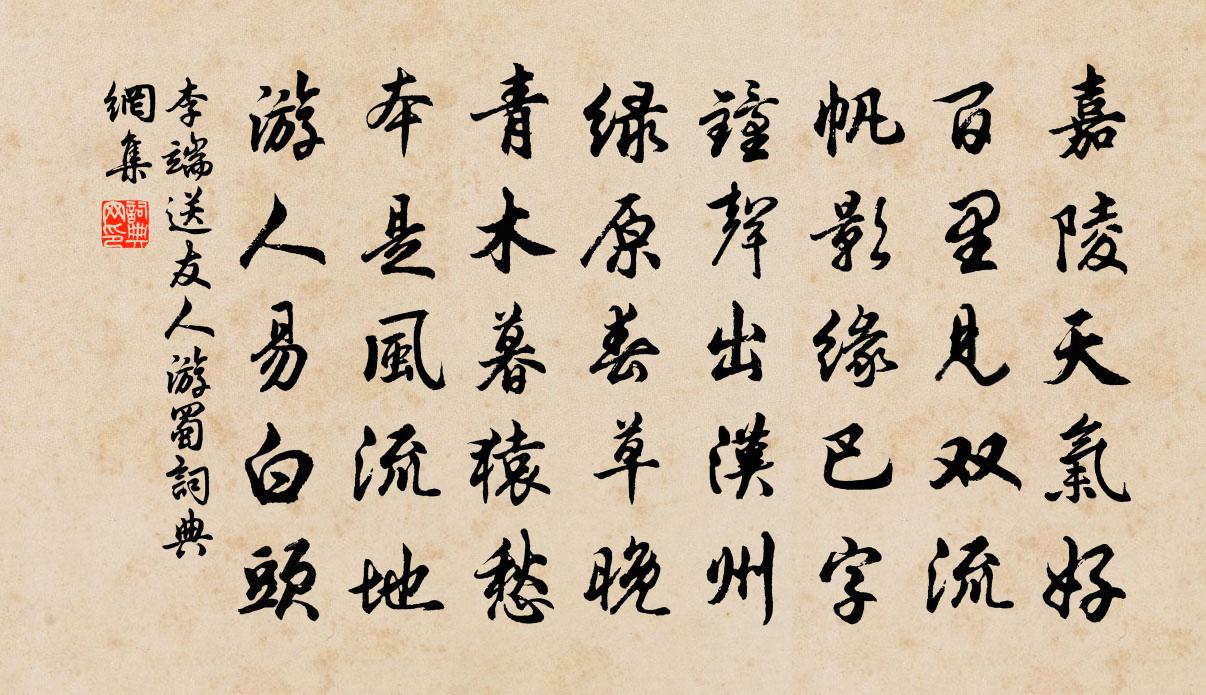 嘉陵天氣好
百里見双流
帆影緣巴字
鐘聲出漢州
綠原春草晚
青木暮猿愁
本是風流地
游人易白頭
李端送友人游蜀詞典
網集
詞典
网印